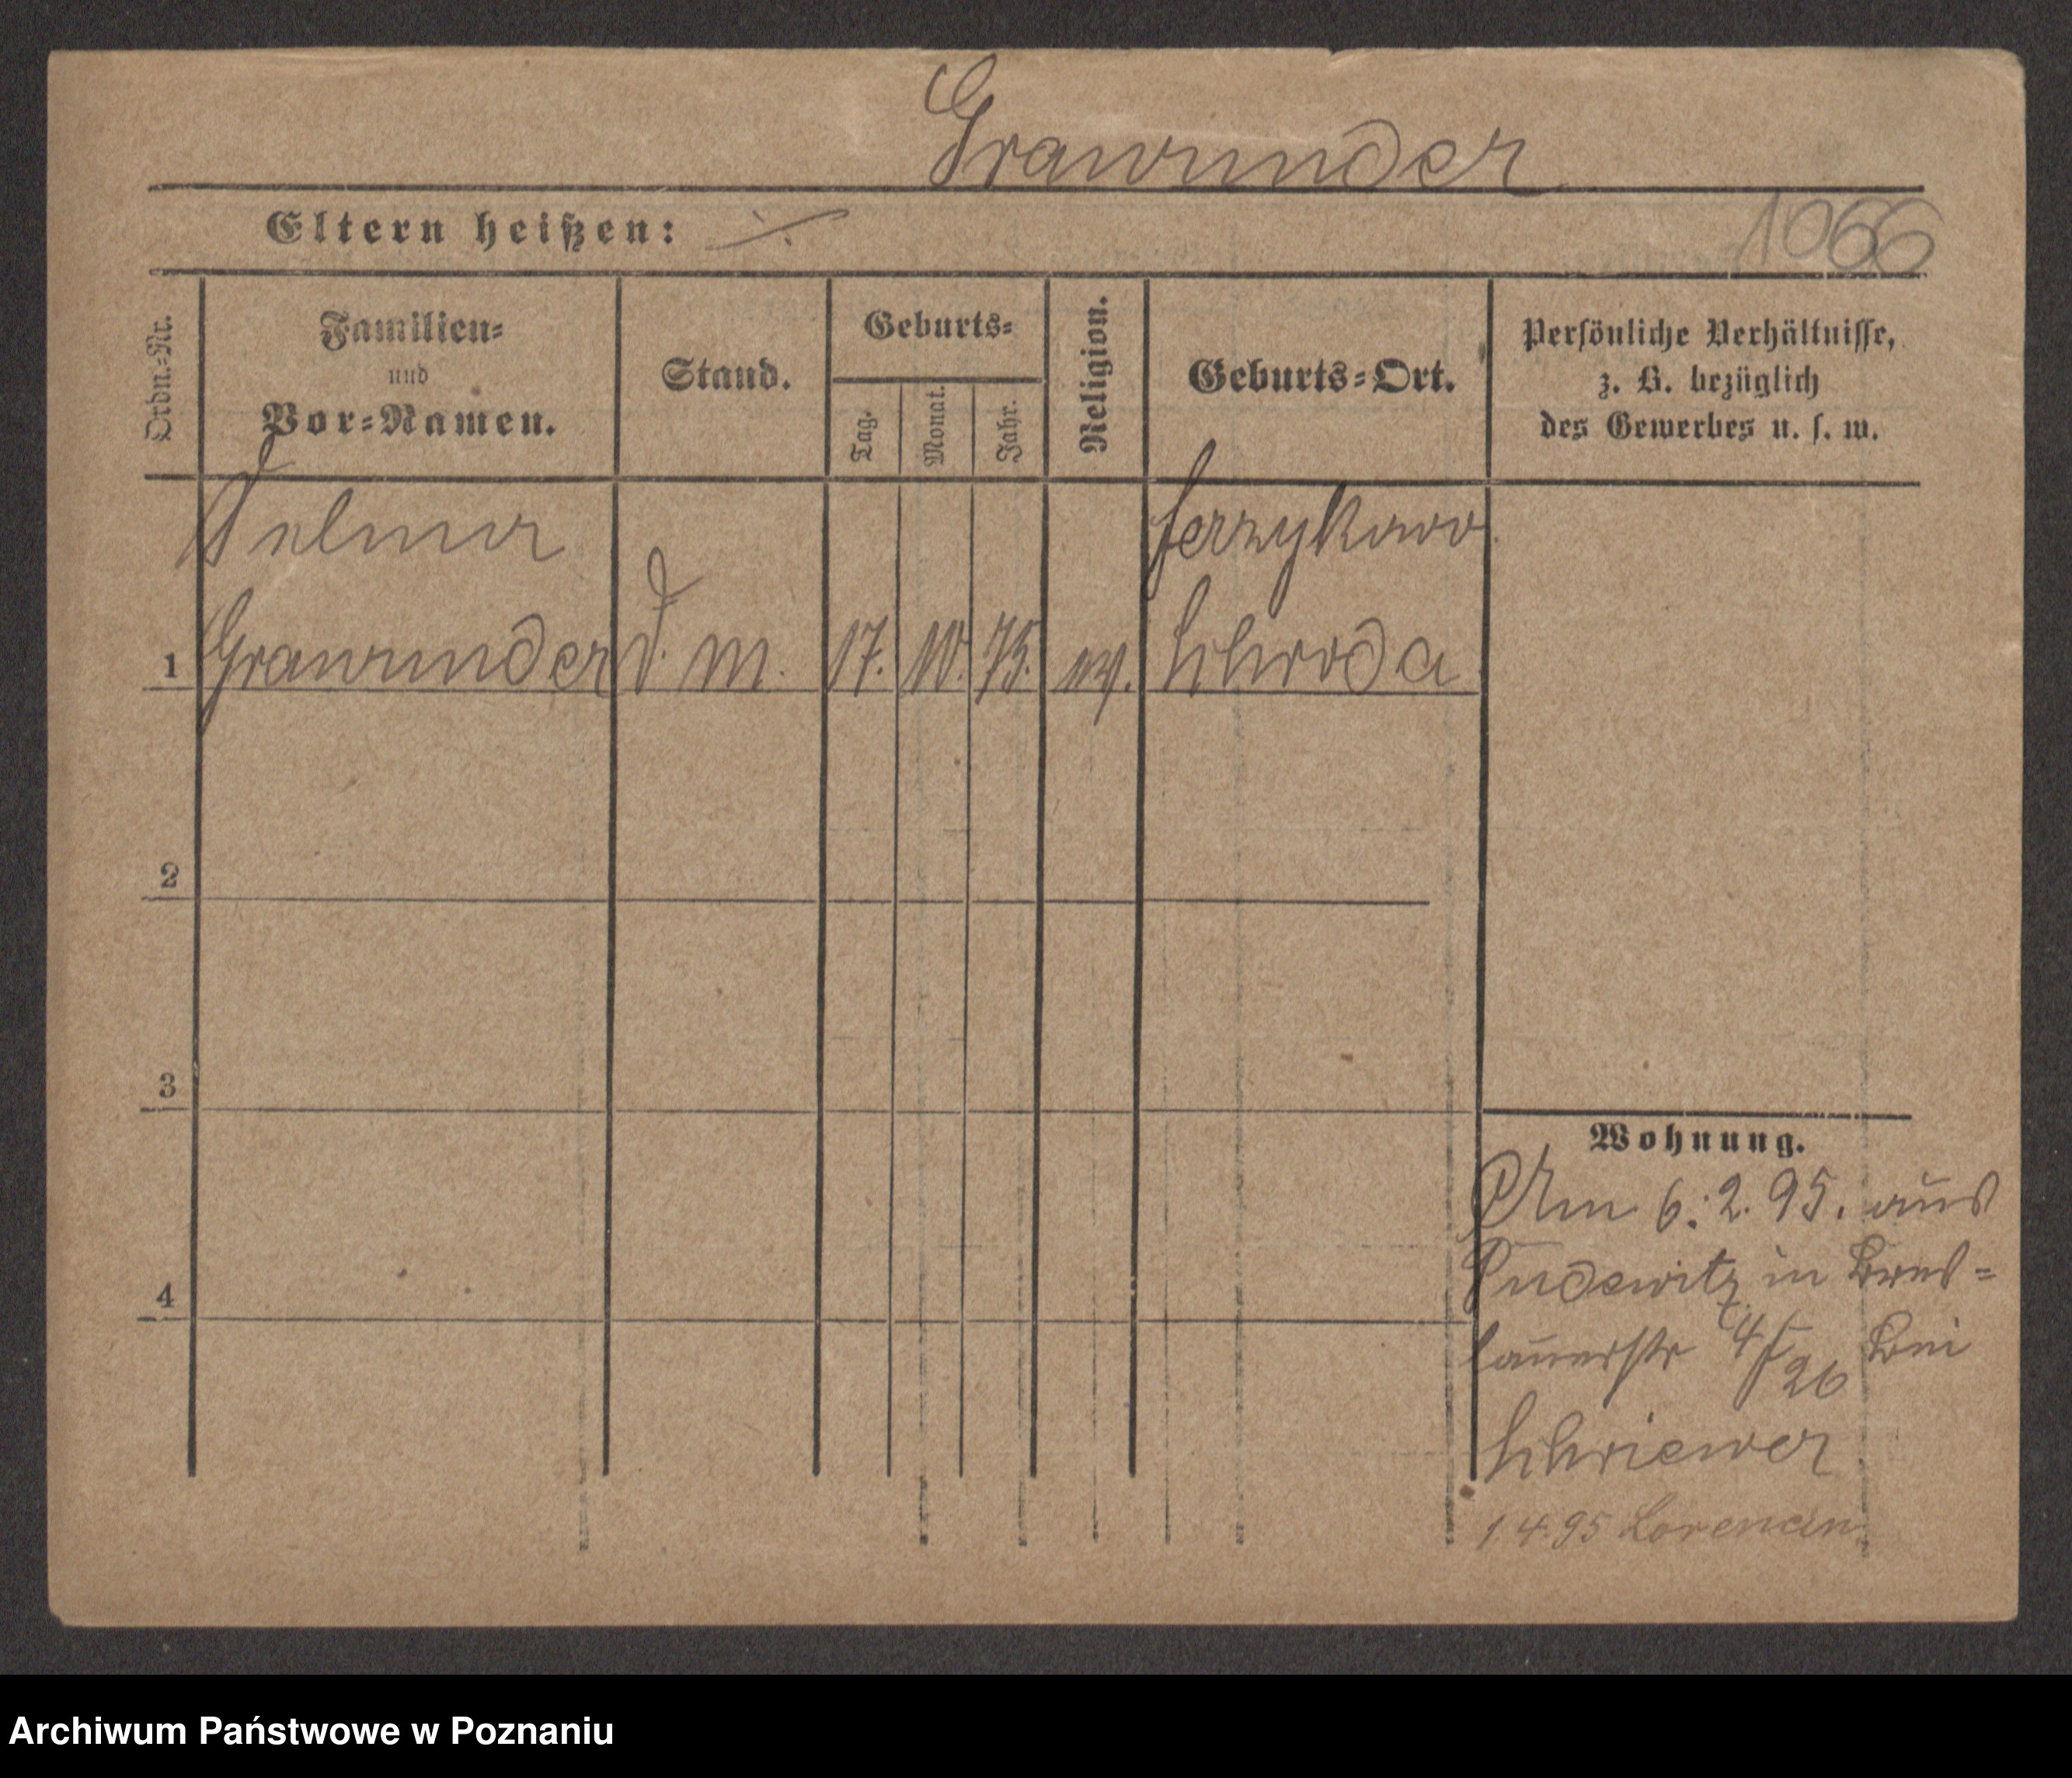 Grawunder
Eltern heißen: ./.
1066
Ordn.-Nr.
Familien-
und
Vor-Namen.
Stand.
Geburts-
Tag.
Monat.
Jahr.
Religion.
Geburts-Ort.
Persönliche Verhältnisse,
z. B. bezüglich
des Gewerbes u. s. w.
Jerzykowo
1 Grawunder d. m. 17. 10. 75. ev. Schroda
2
3
4
Wohnung.
Am 6. 2. 95. aus
Pudewitz in Bres-
lauerstr bei
Schriewer
1 4 95
Archiwum Państwowe w Poznaniu